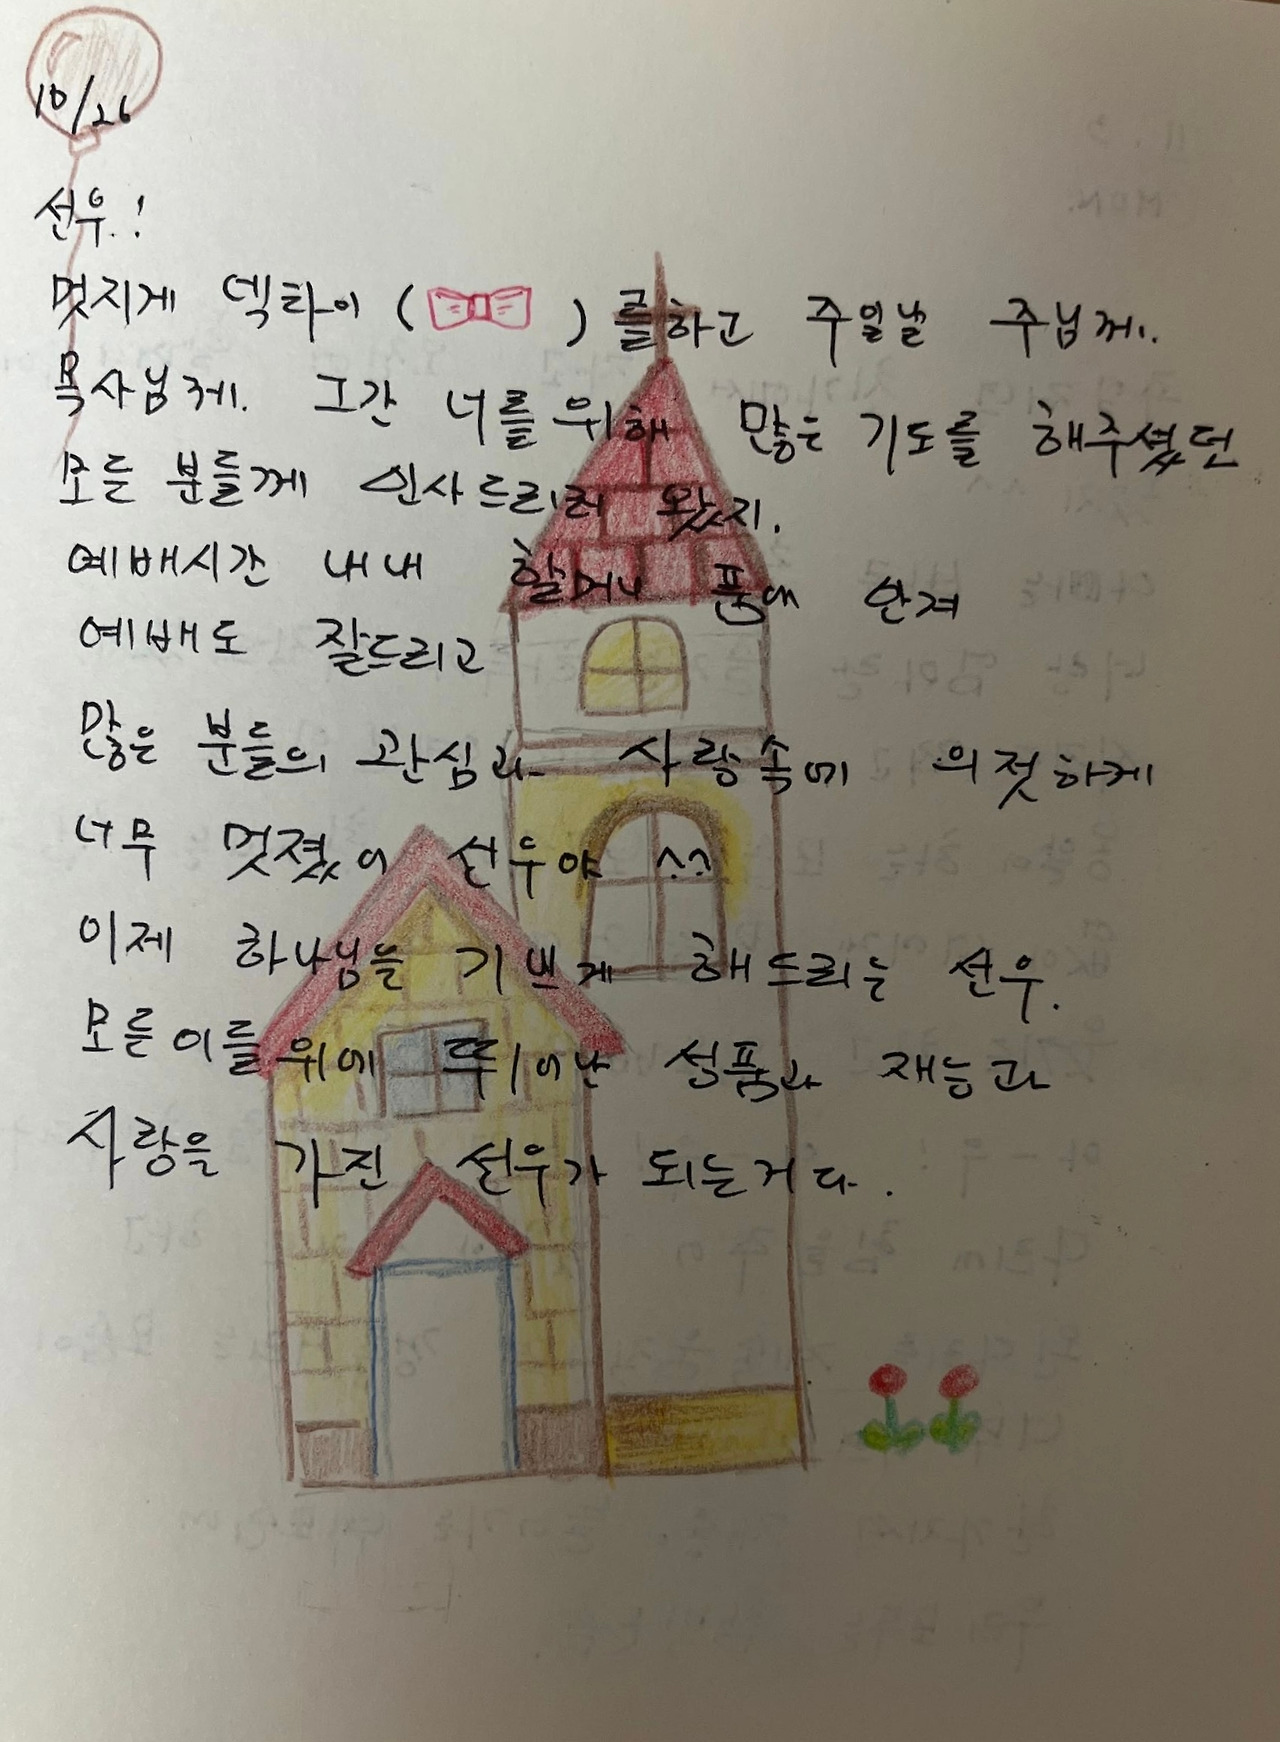 10/26
선우.!
멋지게 넥타이 ( ) 를하고 주일날 주님께.
목사님께. 그간 너를 위해 많은 기도를 해주셨던
모든 분들께 인사드리러 왔지.
예배시간 내내 할머니 품에 안겨
예배도 잘드리고
많은 분들의 관심과 사랑속에 의젓하게
너무 멋졌어 선우야 ^^
이제 하나님을 기쁘게 해드리는 선우.
모든 이들 위에 뛰어난 성품과 재능과
사랑을 가진 선우가 되는거다.